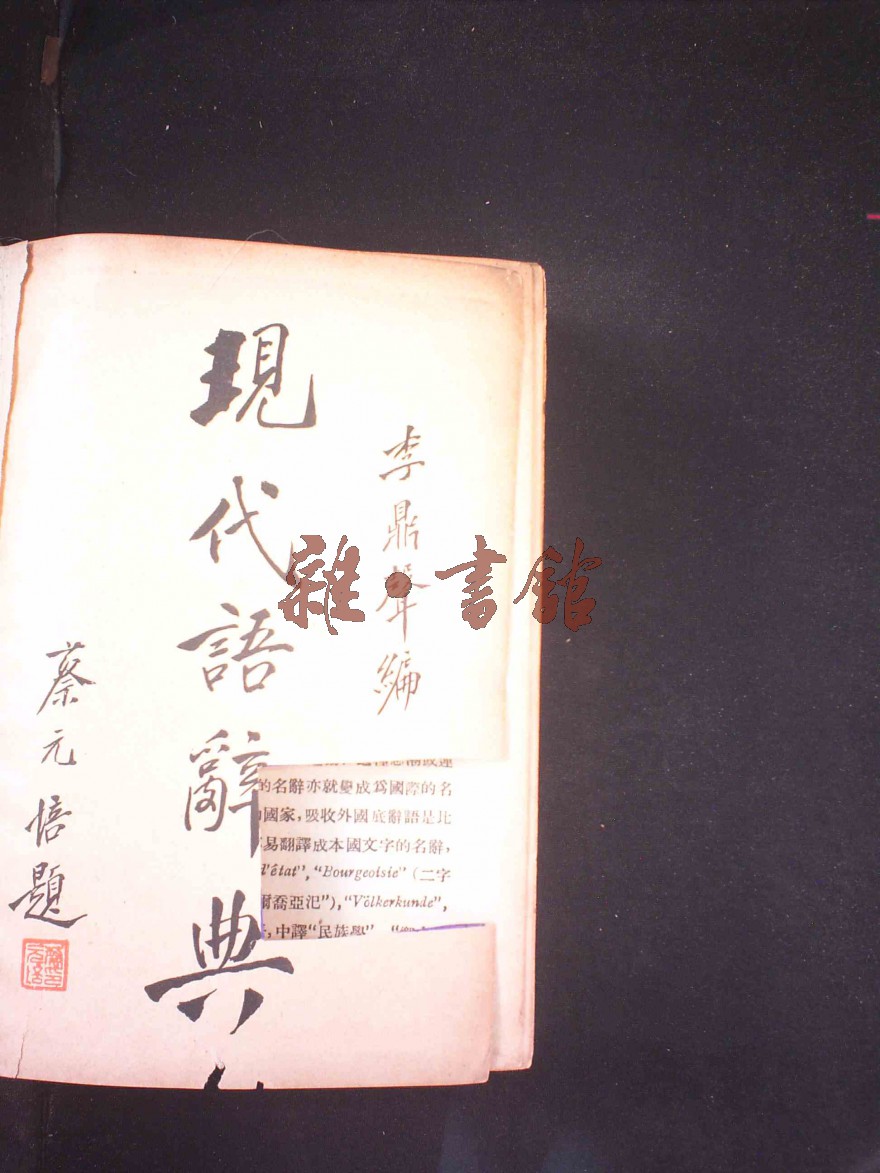 李鼎聲編
現代語辭典
蔡元培題
雜·書館
的名辭亦就變成爲國際的名
國家，吸收外國底辭語是比
易翻譯成本國文字的名辭，
d'état", "Bourgeoisie" (二字
爾喬亞氾"), "Völkerkunde",
，中譯"民族學"